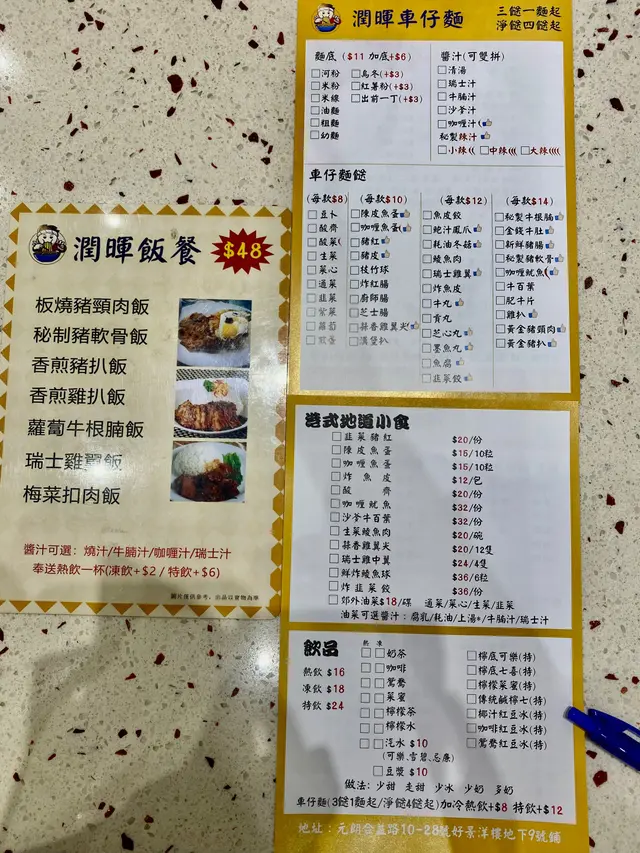 潤暉飯餐
$48
板燒豬頸肉飯
秘制豬軟骨飯
香煎豬扒飯
香煎雞扒飯
蘿蔔牛根腩飯
瑞士雞翼飯
梅菜扣肉飯
醬汁可選：燒汁/牛腩汁/咖喱汁/瑞士汁
奉送熱飲一杯(凍飲+$2 / 特飲+$6)
圖片僅供參考，出品以實物為準
潤暉車仔麵
三餸一麵起
淨餸四餸起
麵底 ($11 加底+$6)
河粉 烏冬(+$3)
米粉 紅薯粉(+$3)
米線 出前一丁(+$3)
油麵
粗麵
幼麵
醬汁(可雙拼)
清湯
瑞士汁
牛腩汁
沙爹汁
咖喱汁
秘製辣汁
小辣 中辣 大辣
車仔麵餸
(每款$8)
豆卜
酸齋
酸菜
生菜
菜心
通菜
韮菜
紫菜
蘿蔔
煎蛋
(每款$10)
陳皮魚蛋
咖喱魚蛋
豬紅
豬皮
枝竹球
炸紅腸
廚師腸
芝士腸
蒜香雞翼尖
漢堡扒
(每款$12)
魚皮餃
鮑汁鳳爪
耗油冬菇
鯪魚肉
瑞士雞翼
炸魚皮
牛丸
貢丸
芝心丸
墨魚丸
魚腐
韮菜餃
(每款$14)
秘製牛根腩
金錢牛肚
新鮮豬腸
秘製豬軟骨
咖喱魷魚
牛百葉
肥牛片
雞扒
黃金豬頸肉
黃金豬扒
港式地道小食
韮菜豬紅 $20/份
陳皮魚蛋 $15/10粒
咖喱魚蛋 $15/10粒
炸魚皮 $12/包
酸齋 $20/份
咖喱魷魚 $32/份
沙爹牛百葉 $32/份
生菜鯪魚肉 $20/碗
蒜香雞翼尖 $20/12隻
瑞士雞中翼 $24/4隻
鮮炸鯪魚球 $36/6粒
炸韮菜餃 $36/份
郊外油菜$18/碟 通菜/菜心/生菜/韮菜
油菜可選醬汁：腐乳/耗油/上湯*/牛腩汁/瑞士汁
飲品
熱飲 $16
凍飲 $18
特飲 $24
熱 凍
奶茶
咖啡
鴛鴦
菜蜜
檸檬茶
檸檬水
汽水 $10
(可樂、雪碧、忌廉)
豆漿 $10
檸底可樂(特)
檸底七喜(特)
檸檬菜蜜(特)
傳統鹹檸七(特)
椰汁紅豆冰(特)
咖啡紅豆冰(特)
鴛鴦紅豆冰(特)
做法： 少甜 走甜 少冰 少奶 多奶
車仔麵(3餸1麵起/淨餸4餸起)加冷熱飲+$8 特飲+$12
地址：元朗合益路10-28號好景洋樓地下9號鋪